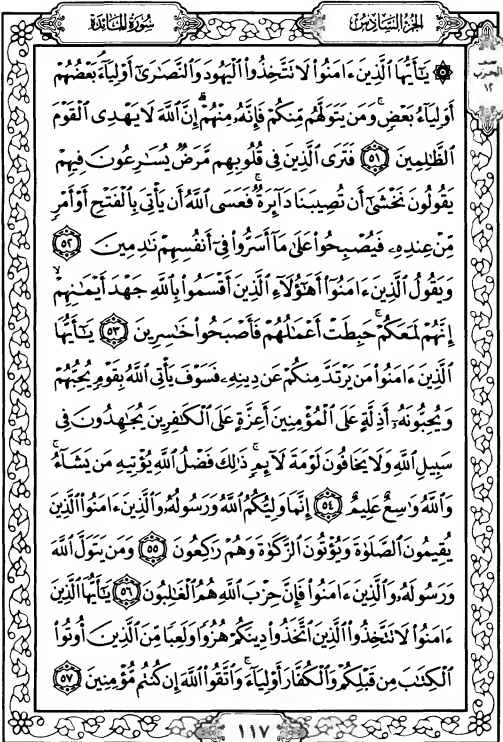 سُورَةُ المَائدة
الجزءُ السَّادِسُ
نصف
الحزب
١٢
۞ يَٰٓأَيُّهَا ٱلَّذِينَ ءَامَنُوا۟ لَا تَتَّخِذُوا۟ ٱلْيَهُودَ وَٱلنَّصَٰرَىٰٓ أَوْلِيَآءَۘ بَعْضُهُمْ
أَوْلِيَآءُ بَعْضٍۚ وَمَن يَتَوَلَّهُم مِّنكُمْ فَإِنَّهُۥ مِنْهُمْۗ إِنَّ ٱللَّهَ لَا يَهْدِى ٱلْقَوْمَ
ٱلظَّٰلِمِينَ ٥١ فَتَرَى ٱلَّذِينَ فِى قُلُوبِهِم مَّرَضٌ يُسَٰرِعُونَ فِيهِمْ
يَقُولُونَ نَخْشَىٰٓ أَن تُصِيبَنَا دَآئِرَةٌۚ فَعَسَى ٱللَّهُ أَن يَأْتِىَ بِٱلْفَتْحِ أَوْ أَمْرٍ
مِّنْ عِندِهِۦ فَيُصْبِحُوا۟ عَلَىٰ مَآ أَسَرُّوا۟ فِىٓ أَنفُسِهِمْ نَٰدِمِينَ ٥٢
وَيَقُولُ ٱلَّذِينَ ءَامَنُوٓا۟ أَهَٰٓؤُلَآءِ ٱلَّذِينَ أَقْسَمُوا۟ بِٱللَّهِ جَهْدَ أَيْمَٰنِهِمْۙ
إِنَّهُمْ لَمَعَكُمْۚ حَبِطَتْ أَعْمَٰلُهُمْ فَأَصْبَحُوا۟ خَٰسِرِينَ ٥٣ يَٰٓأَيُّهَا
ٱلَّذِينَ ءَامَنُوا۟ مَن يَرْتَدَّ مِنكُمْ عَن دِينِهِۦ فَسَوْفَ يَأْتِى ٱللَّهُ بِقَوْمٍ يُحِبُّهُمْ
وَيُحِبُّونَهُۥٓ أَذِلَّةٍ عَلَى ٱلْمُؤْمِنِينَ أَعِزَّةٍ عَلَى ٱلْكَٰفِرِينَ يُجَٰهِدُونَ فِى
سَبِيلِ ٱللَّهِ وَلَا يَخَافُونَ لَوْمَةَ لَآئِمٍۚ ذَٰلِكَ فَضْلُ ٱللَّهِ يُؤْتِيهِ مَن يَشَآءُۚ
وَٱللَّهُ وَٰسِعٌ عَلِيمٌ ٥٤ إِنَّمَا وَلِيُّكُمُ ٱللَّهُ وَرَسُولُهُۥ وَٱلَّذِينَ ءَامَنُوا۟ ٱلَّذِينَ
يُقِيمُونَ ٱلصَّلَوٰةَ وَيُؤْتُونَ ٱلزَّكَوٰةَ وَهُمْ رَٰكِعُونَ ٥٥ وَمَن يَتَوَلَّ ٱللَّهَ
وَرَسُولَهُۥ وَٱلَّذِينَ ءَامَنُوا۟ فَإِنَّ حِزْبَ ٱللَّهِ هُمُ ٱلْغَٰلِبُونَ ٥٦ يَٰٓأَيُّهَا ٱلَّذِينَ
ءَامَنُوا۟ لَا تَتَّخِذُوا۟ ٱلَّذِينَ ٱتَّخَذُوا۟ دِينَكُمْ هُزُوًا وَلَعِبًا مِّنَ ٱلَّذِينَ أُوتُوا۟
ٱلْكِتَٰبَ مِن قَبْلِكُمْ وَٱلْكُفَّارَ أَوْلِيَآءَۚ وَٱتَّقُوا۟ ٱللَّهَ إِن كُنتُم مُّؤْمِنِينَ ٥٧
١١٧